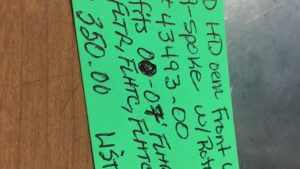 D HD oem Front
-Spoke w/Rot
43493-00
fits 00-07 FLHR
FLTR, FLHTC, FLHTC
350.00 List